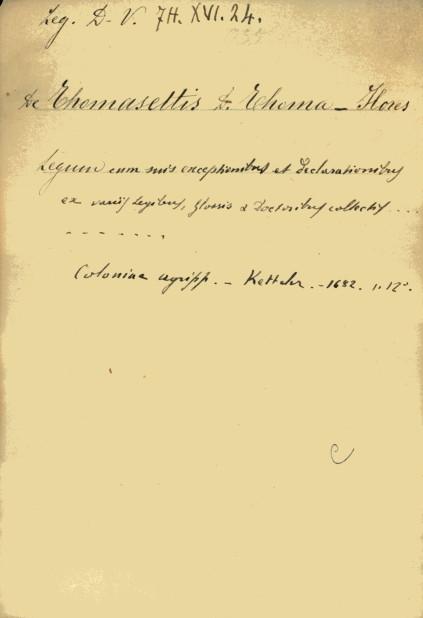 Leg. D. V. 7H. XVI. 24.
De Thomasettis D. Thoma _ Flores
Legum cum suis exceptionibus et Declarationibus
ex variis Legibus, glossis & Doctoribus collectis ...
- - - - - - -
Coloniae agripp. - - 1682. 1. 12°.
C